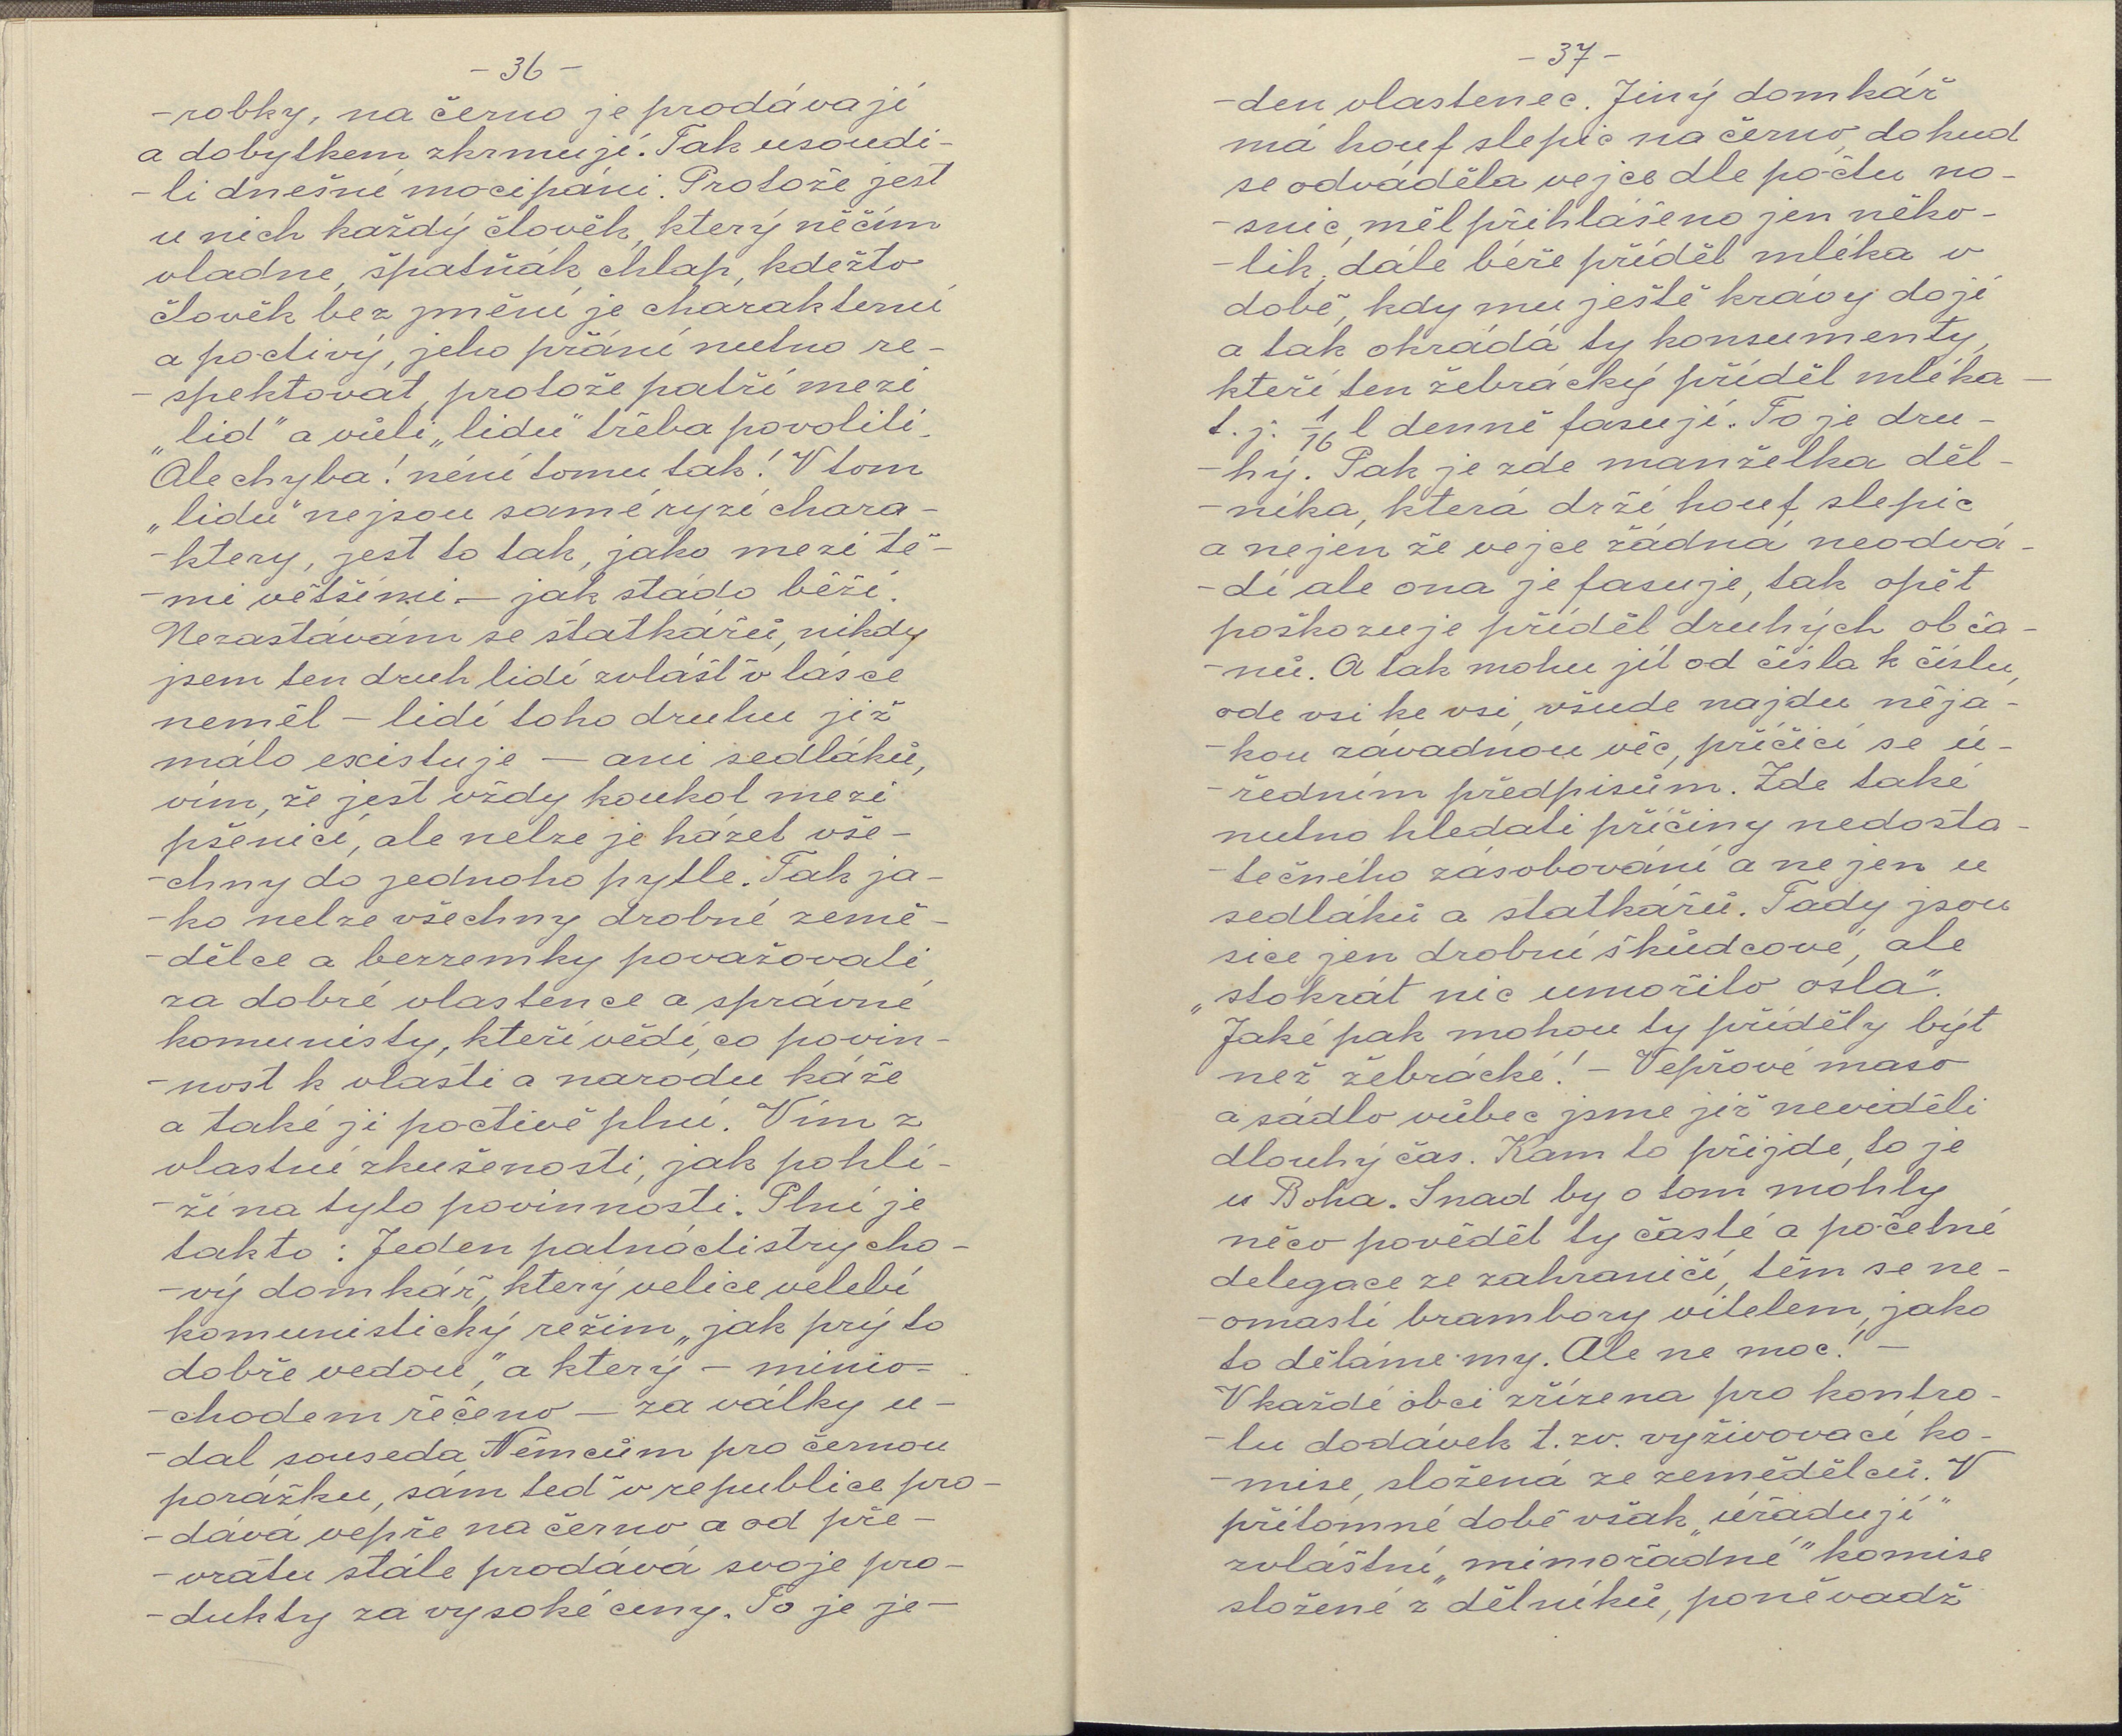 - 36 -
-robky, na černo je prodávají
a dobytkem zkrmují. Tak usoudi-
-li dnešní mocipáni. Protože jest
u nich každý člověk, který něčím
vladne, špatňák, chlap, kdežto
člověk bez jmění je charakterní
a poctivý, jeho přání nutno re-
-spektovat, protože patří mezi
„lid" a vůli „lidu" třeba povoliti.
Ale chyba! není tomu tak! V tom
„lidu" nejsou samé ryzí chara-
-ktery, jest to tak, jako mezi tě-
-mi většími - jak stádo běží.
Nezastávám se statkářů, nikdy
jsem ten druh lidí zvlášť v lásce
neměl - lidí toho druhu již
málo existuje - ani sedláků,
vím, že jest vždy koukol mezi
pšenicí, ale nelze je házet vše-
-chny do jednoho pytle. Tak ja-
-ko nelze všechny drobné země-
-dělce a bezzemky považovati
za dobré vlastence a správné
komunisty, kteří vědí, co povin-
-nost k vlasti a narodu káže
a také ji poctivě plní. Vím z
vlastní zkušenosti, jak pohlí-
-ží na tyto povinnosti. Plní je
takto: Jeden patnáctistrycho-
-vý domkář, který velice velebí
komunistický režim „jak prý to
dobře vedou", a který - mimo=
-chodem řečeno - za války u-
-dal souseda Němcům pro černou
porážku, sám teď v republice pro-
-dává vepře na černo a od pře-
-vratu stále prodává svoje pro-
-dukty za vysoké ceny. To je je-
- 37 -
-den vlastenec. Jiný domkář
má houf slepic na černo, dokud
se odváděla vejce dle počtu no-
-snic, měl přihlášeno jen něko-
-lik, dále béře příděl mléka v
době, kdy mu ještě krávy dojí
a tak okrádá ty konsumenty,
kteří ten žebrácký příděl mléka -
t. j. 1/16 l denně fasují. To je dru-
-hý. Pak je zde manželka děl-
-níka, která drží houf slepic
a nejen že vejce žádná neodvá-
-dí ale ona je fasuje, tak opět
poškozuje příděl druhých obča-
-nů. A tak mohu jít od čísla k číslu,
ode vsi ke vsi, všude najdu něja-
-kou závadnou věc, příčící se ú-
-ředním předpisům. Zde také
nutno hledati příčiny nedosta-
-tečného zásobování a nejen u
sedláků a statkářů. Tady jsou
sice jen drobní škůdcové, ale
„stokrát nic umořilo osla".
Jaké pak mohou ty příděly být
než žebrácké! - Vepřové maso
a sádlo vůbec jsme již neviděli
dlouhý čas. Kam to přijde, to je
u Boha. Snad by o tom mohly
něco povědět ty časté a početné
delegace ze zahraničí, těm se ne-
-omastí brambory vitelem, jako
to děláme my. Ale ne moc! -
V každé obci zřízena pro kontro-
-lu dodávek t. zv. vyživovací ko-
-mise, složená ze zemědělců. V
přítomné době však „úřadují"
zvláštní „mimořadné" komise
složené z dělníků, poněvadž